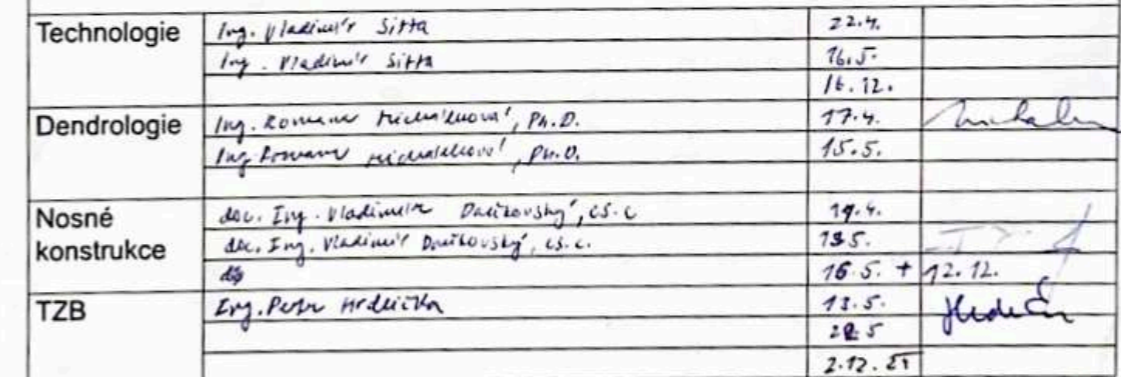 Technologie Ing. Vladimír Sitta 22.4.
Ing. Vladimír Sitta 16.5.
16.12.
Dendrologie Ing. Romana Michálková, Ph.D. 17.4.
Ing. Romana Ph.D. 15.5.
Nosné konstrukce doc. Ing. Vladimír Daňkovský, cs.c 19.4.
doc. Ing. Vladimír Daňkovský, cs.c. 13.5.
16.5. + 12.12.
TZB Ing. Petr Hrdlička 13.5.
5
2.12.